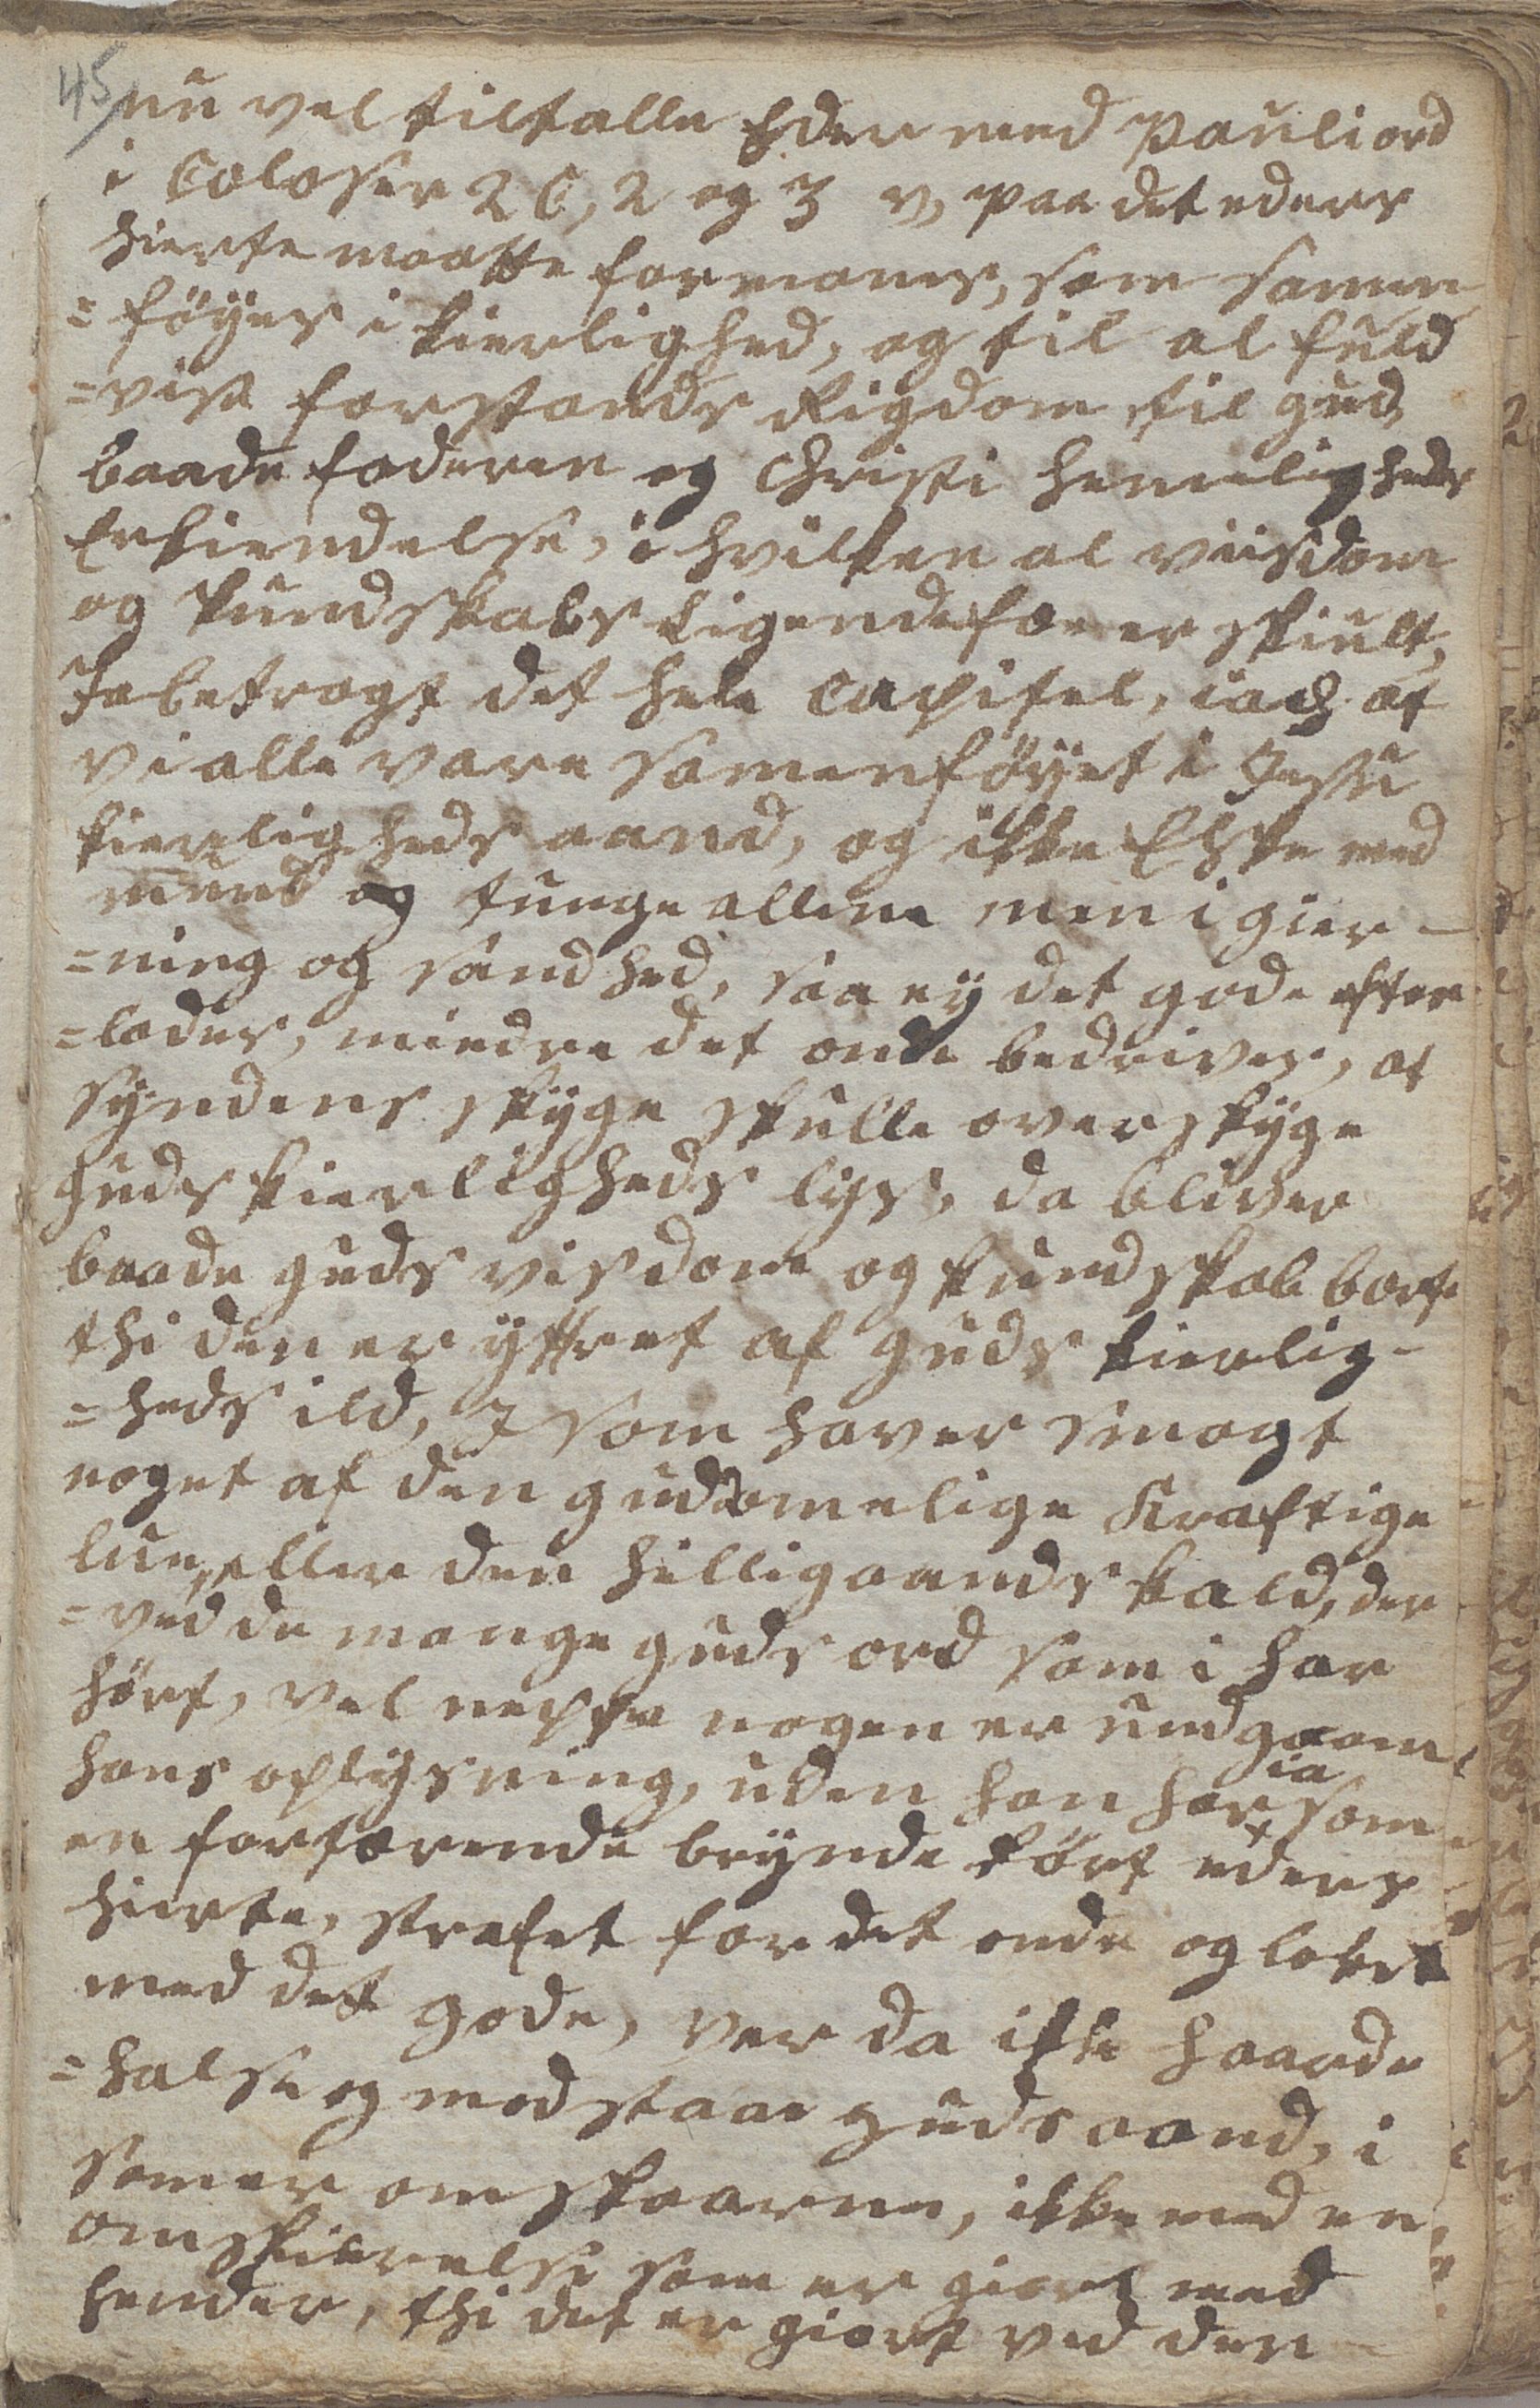 45
nu vel tiltalle Eder med Pauli ord
i Coloser 2 C, 2 og 3 v, paa det eders
hierte maatte formanes, som samen
=føÿes i kierlighed, og til al fuld
=vise forstands Rigdom, til gud
baade faderen og Christi hemeligheds
Erkiendelse, i hvilken al viisdom
og kundskabs ligendefæ er skiult,
Ja betragt det hele Capitel, iach at
vi alle vare samenføÿet i Jesu
kierligheds aand, og ikke Elske med
mund og tunge allene men i gier-
=ning og sandhed, saa eÿ det gode efter
=lades, mindre det onde bedrives, at
sÿndens skÿge skulle overskÿge
guds kierligheds lÿs, da bliver
baade guds visdom og kundskab borte
thi den er ÿttret af guds kierlig-
=heds ild, I som haver smagt
noget af den gudomelige Kraftige
lue, eller den hilligaands kald, der
=ved de mange guds ord som i har
hørt, vel neppe nogen er undgaan
hans oplÿsning, uden han har ia som
en fortærende brÿnde rørt eders
hierte, straffet for det onde og loket
med det gode, ver da ikke haarde
=halse og modstaar guds aand, i
som er omskaaren, ikke med en
omskierelse som er giort med
hender, thi det er giort ved den